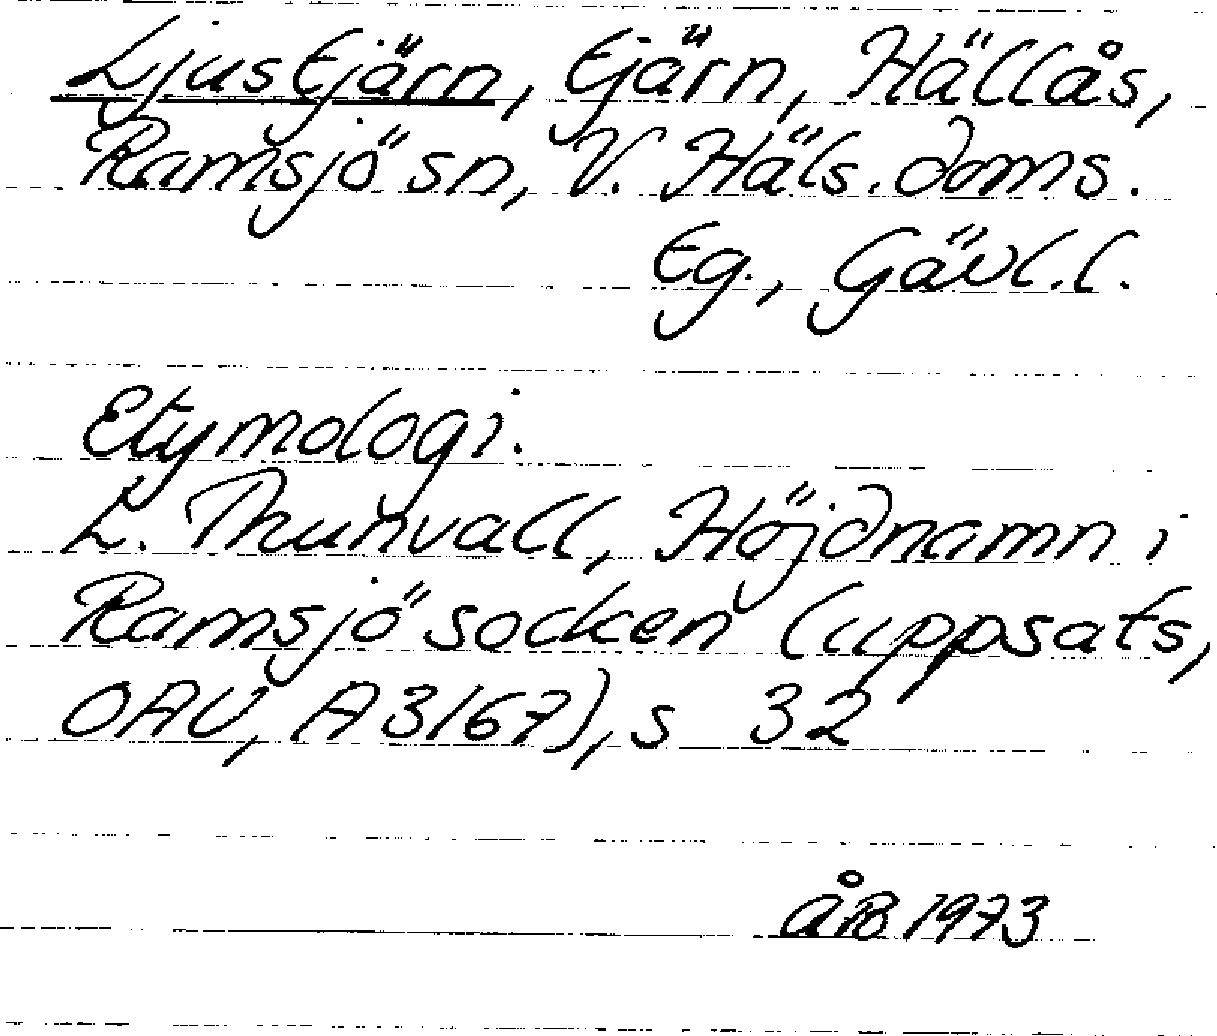 Ljustjärn, tjärn, Hällås,
Ramsjö sn, V. Häls. doms.
Eg., Gävl.l.
Etymologi.
L. Thunvall, Höjdnamn i
Ramsjö socken (uppsats,
OAU, A3167), s 32
ÅB 1973